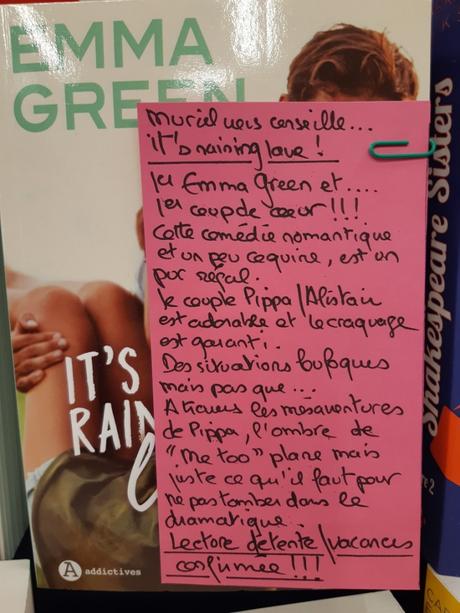 EMMA
GREEN
Muriel vous conseille...
it's raining love !
1er Emma Green et ....
1er coup de coeur !!!
Cette comédie romantique
et un peu coquine, est un
pur régal.
Le couple Pippa/Alistair
est adorable et le craquage
est garanti.
Des situations burlesques
mais pas que...
A travers les mésaventures
de Pippa, l'ombre de
"Me too" plane mais
juste ce qu'il faut pour
ne pas tomber dans le
dramatique.
Lecture détente/vacances
confirmée !!!
IT'S
RAIN
addictives
Shakespeare Sisters